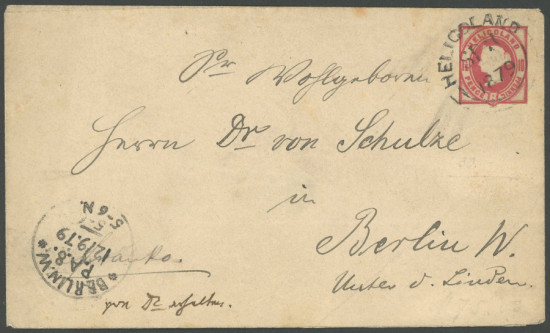 HELIGOLAND
HELIGOLAND
Sr Wohlgeboren
Herrn Dr von Schulze
in
Berlin W.
Unter d. Linden.
BERLIN.W
P.A.8.
12/9.79
5-6 N.
Franko.